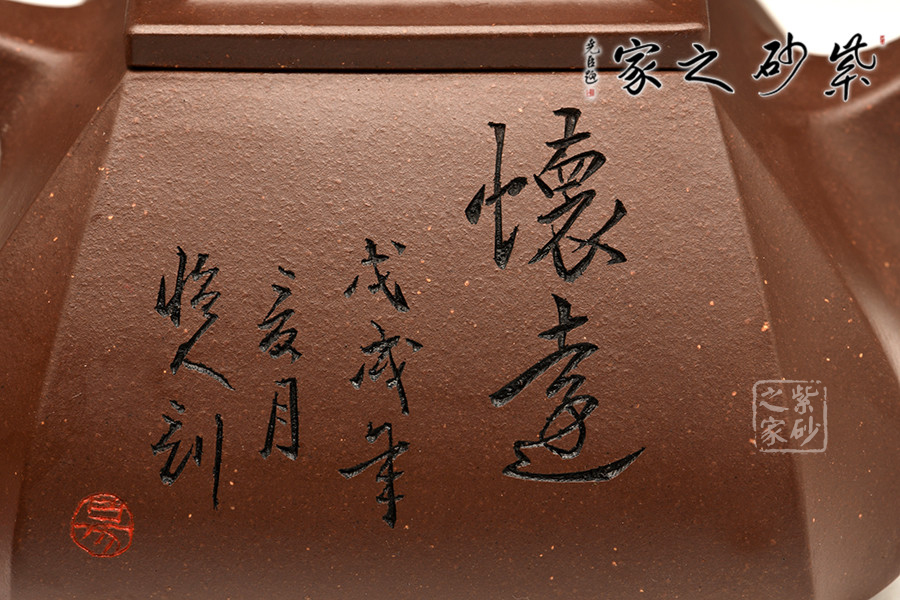 懷遠
戊戌年
亥月
悟人刻
易
紫砂之家
紫砂之家